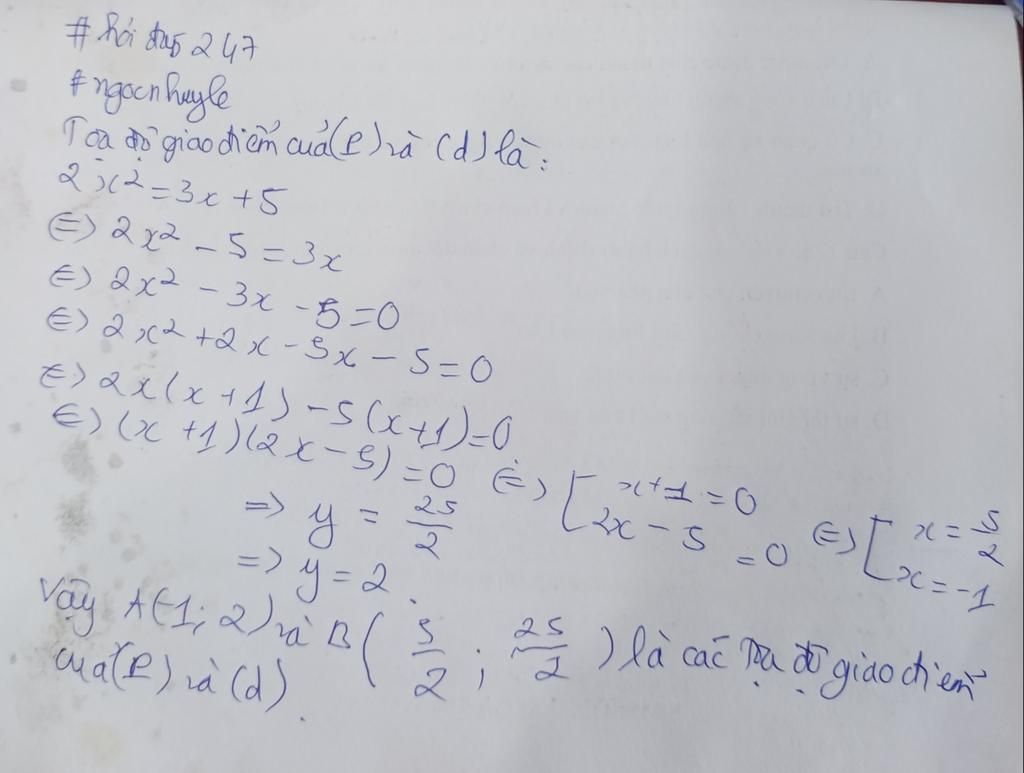 # hỏi đáp 247
# ngocnhuyle
Toạ độ giao điểm của (P) và (d) là:
2x² = 3x + 5
⇔ 2x² - 5 = 3x
⇔ 2x² - 3x - 5 = 0
⇔ 2x² + 2x - 5x - 5 = 0
⇔ 2x(x + 1) - 5(x + 1) = 0
⇔ (x + 1)(2x - 5) = 0 ⇔ [ x + 1 = 0 2x - 5 = 0 ⇔ [ x = 5/2 x = -1
=> y = 25/2
=> y = 2.
Vậy A(-1; 2) và B( 5/2 ; 25/2 ) là các toạ độ giao điểm
của (P) và (d).